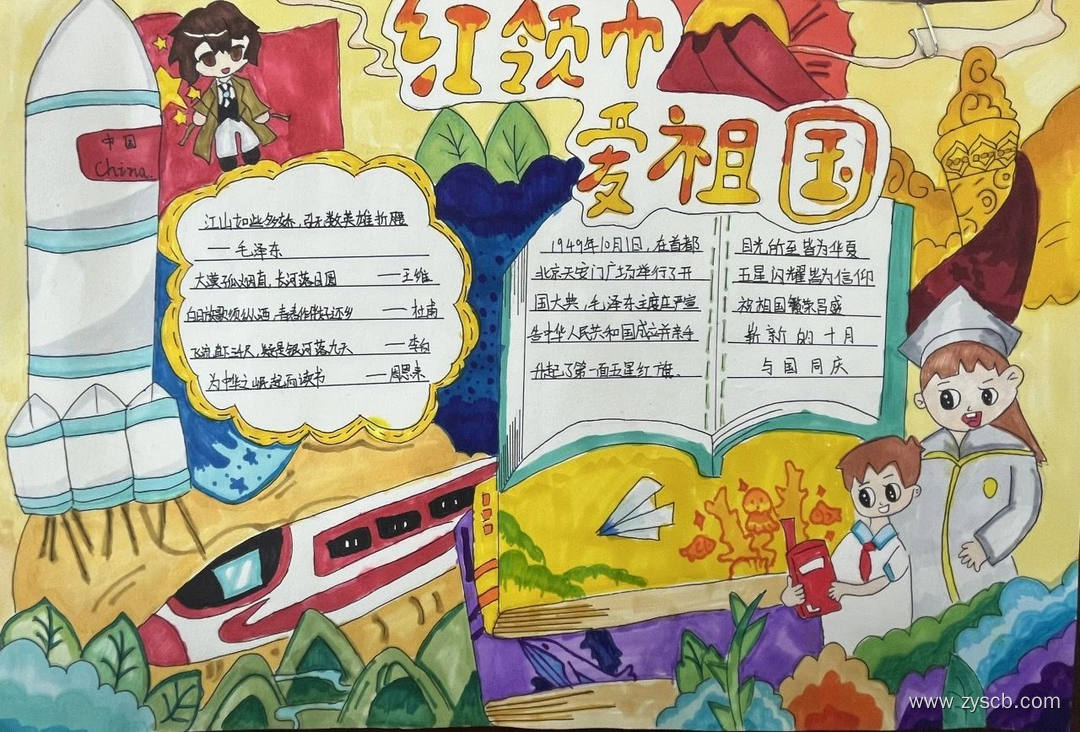 红领巾
爱祖国
中国
China.
江山如此多娇,引无数英雄折腰
——毛泽东
大漠孤烟直,长河落日圆 ——王维
白日放歌须纵酒,青春作伴好还乡 ——杜甫
飞流直下三千尺,疑是银河落九天 ——李白
为中华之崛起而读书 ——周恩来
1949年10月1日,在首都
北京天安门广场举行了开
国大典,毛泽东主席庄严宣
告中华人民共和国成立并亲手
升起了第一面五星红旗。
目光所至皆为华夏
五星闪耀皆为信仰
祝祖国繁荣昌盛
崭新的十月
与国同庆
www.zyscb.com